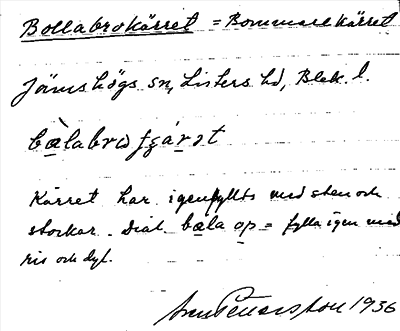 Bollabrokärret = Bommarekärret
Jämshögs sn, Listers hd, Blek. l.
bæ̀labro
Kärret har igenfyllts med sten och
stockar. Dial. bæla op = fylla igen med
ris och dyl.
Pettersson 1936